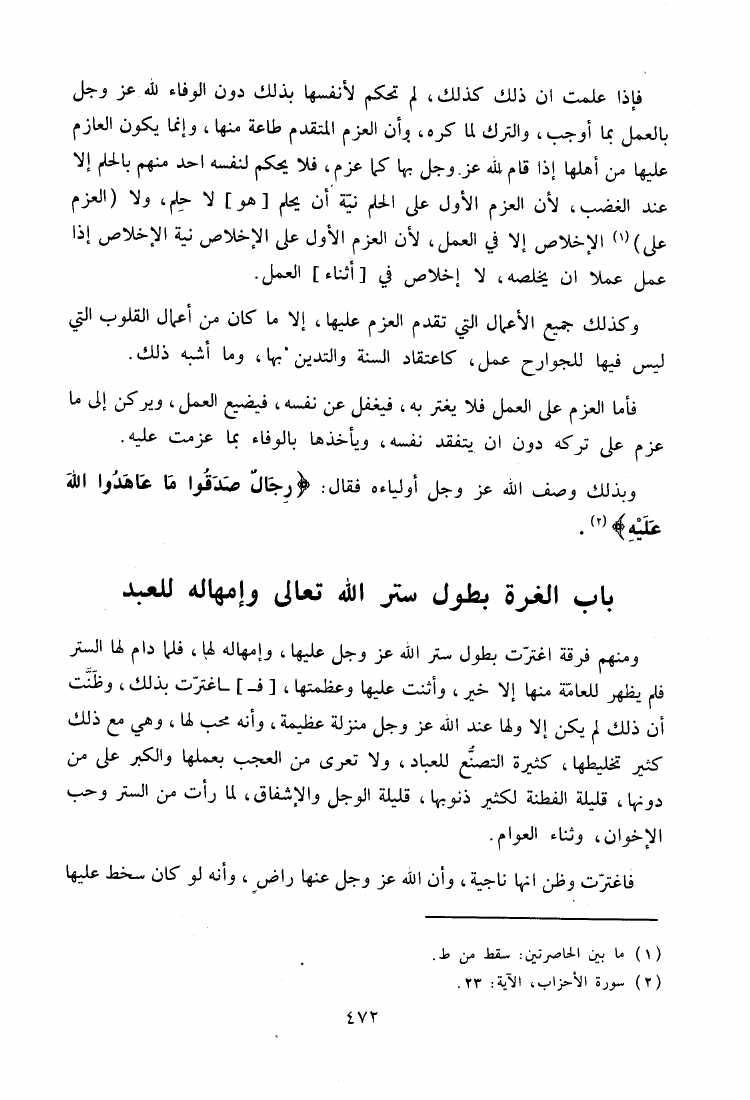 فإذا علمت ان ذلك كذلك، لم تحكم لأنفسها بذلك دون الوفاء لله عز وجل
بالعمل بما أوجب، والترك لما كره، وأن العزم المتقدم طاعة منها، وإنما يكون العازم
عليها من أهلها إذا قام لله عز وجل بها كما عزم، فلا يحكم لنفسه احد منهم بالحلم إلا
عند الغضب، لأن العزم الأول على الحلم نيّة أن يحلم [ هو ] لا حِلم، ولا (العزم
على)(١) الإخلاص إلا في العمل، لأن العزم الأول على الإخلاص نية الإخلاص إذا
عمل عملا ان يخلصه، لا إخلاص في [ أثناء ] العمل.
وكذلك جميع الأعمال التي تقدم العزم عليها، إلا ما كان من أعمال القلوب التي
ليس فيها للجوارح عمل، كاعتقاد السنة والتدين بها، وما أشبه ذلك.
فأما العزم على العمل فلا يغتر به، فيغفل عن نفسه، فيضيع العمل، ويركن إلى ما
عزم على تركه دون ان يتفقد نفسه، ويأخذها بالوفاء بما عزمت عليه.
وبذلك وصف الله عز وجل أولياءه فقال: ﴿رِجَالٌ صَدَقُوا مَا عَاهَدُوا اللهَ
عَلَيْهِ﴾(٢).
باب الغرة بطول ستر الله تعالى وإمهاله للعبد
ومنهم فرقة اغترّت بطول ستر الله عز وجل عليها، وإمهاله لها، فلما دام لها الستر
فلم يظهر للعامّة منها إلا خير، وأثنت عليها وعظمتها، [ فـ ] ـاغترّت بذلك، وظَنَّت
أن ذلك لم يكن إلا ولها عند الله عز وجل منزلة عظيمة، وأنه محب لها، وهي مع ذلك
كثير تخليطها، كثيرة التصنُّع للعباد، ولا تعرى من العجب بعملها والكبر على من
دونها، قليلة الفطنة لكثير ذنوبها، قليلة الوجل والإشفاق، لما رأت من الستر وحب
الإخوان، وثناء العوام.
فاغترّت وظن انها ناجية، وأن الله عز وجل عنها راضٍ، وأنه لو كان سخط عليها
(١) ما بين الحاصرتين: سقط من ط.
(٢) سورة الأحزاب، الآية: ٢٣.
٤٧٢